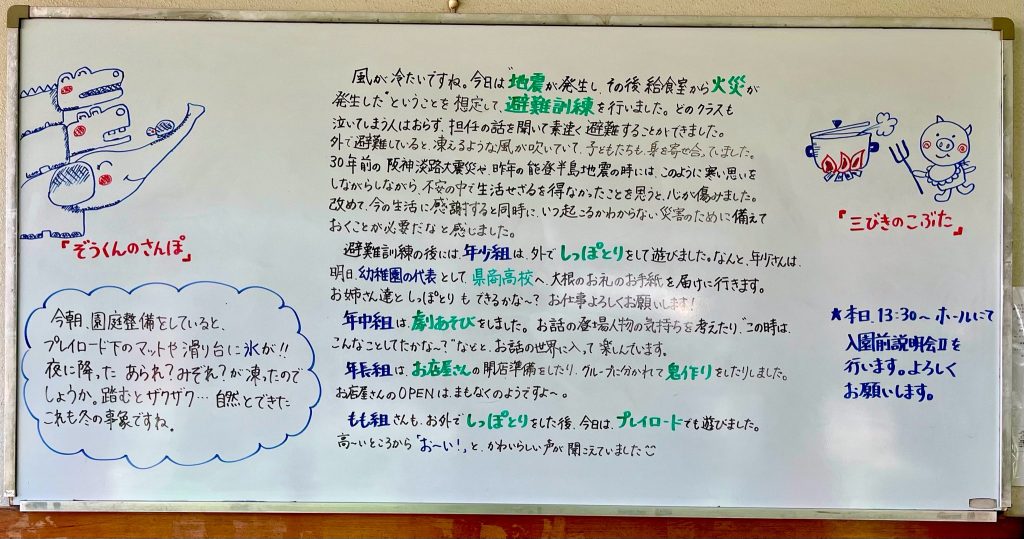 風が冷たいですね。今日は"地震が発生し、その後給食室から火災が
発生した"ということを想定して、避難訓練を行いました。どのクラスも
泣いてしまう人はおらず、担任の話を聞いて素速く避難することができました。
外で避難していると、凍えるような風が吹いていて、子どもたちも、身を寄せ合っていました。
30年前の阪神淡路大震災や、昨年の能登半島地震の時には、このように寒い思いを
しながらしながら、不安の中で生活せざるを得なかったことを思うと、心が傷みました。
改めて、今の生活に感謝すると同時に、いつ起こるかわからない災害のために備えて
おくことが必要だなと感じました。
避難訓練の後には、年少組は、外でしっぽとりをして遊びました。なんと、年少さんは、
明日、幼稚園の代表として、県商高校へ、大根のお礼のお手紙を届けに行きます。
お姉さん達としっぽとりもできるかな〜?お仕事よろしくお願いします!
年中組は、劇あそびをしました。お話の登場人物の気持ちを考えたり、"この時は、
こんなことしてたかな〜?"などと、お話の世界に入って楽しんでいます。
年長組は、お店屋さんの開店準備をしたり、グループに分かれて鬼作りをしたりしました。
お店屋さんのOPENは、まもなくのようですよ〜。
もも組さんも、お外でしっぽとりをした後、今日は、プレイロードでも遊びました。
高〜いところから「お〜い!」と、かわいらしい声が聞こえていました
『ぞうくんのさんぽ』
今朝、園庭整備をしていると、
プレイロード下のマットや滑り台に氷が!!
夜に降ったあられ?みぞれ?が凍ったので
しょうか。踏むとザクザク…自然とできた
これも冬の事象ですね。
『三びきのこぶた』
★本日、13:30〜ホールにて
入園前説明会Ⅱを
行います。よろしく
お願いします。